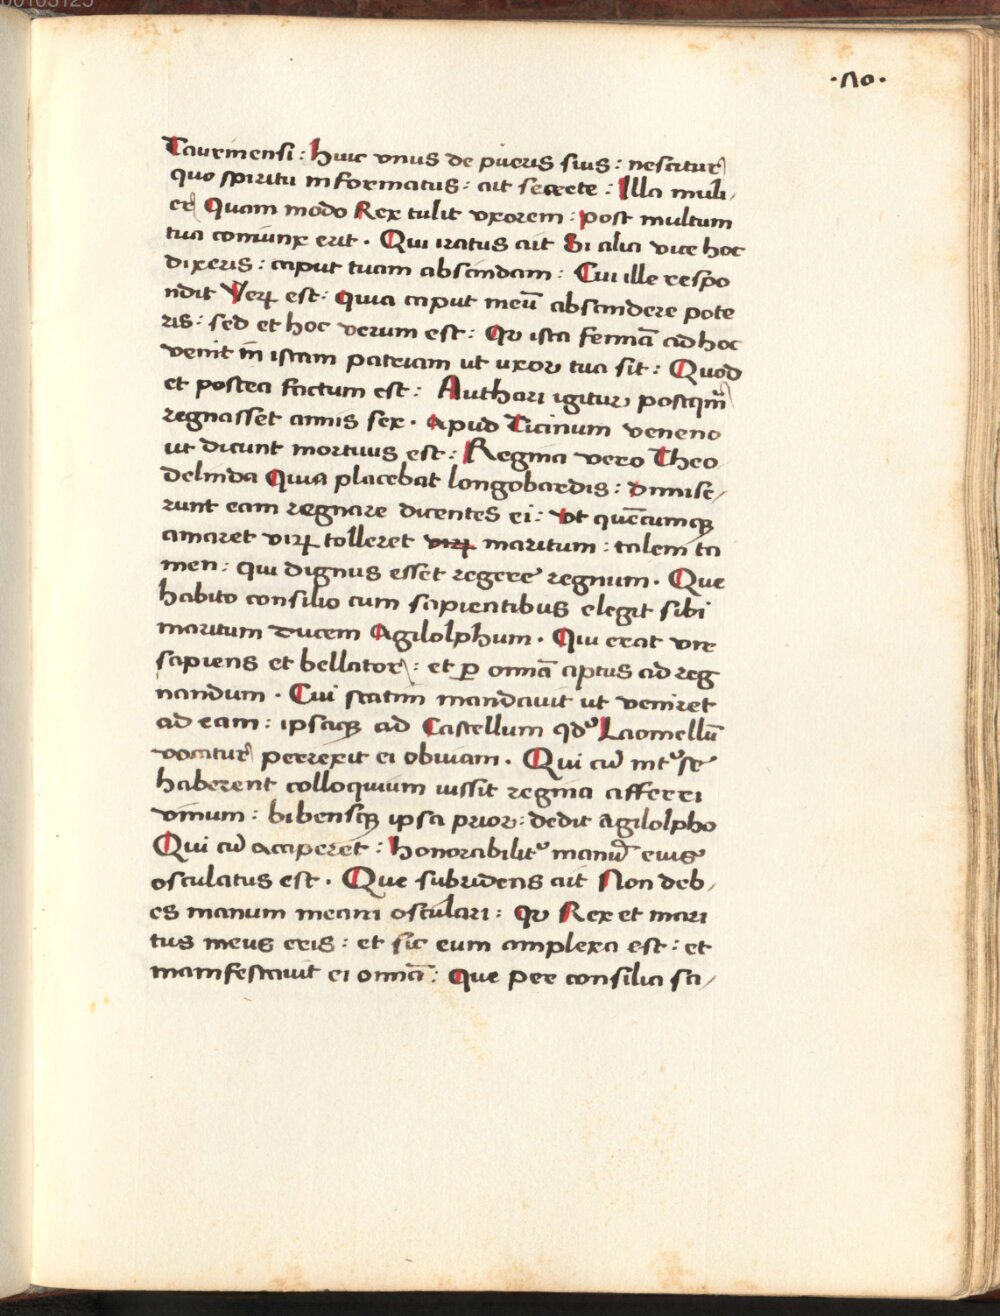 00103125
·Λ0·
Taurinensi : huic vnus de pueris suis : nescitur
quo spiritu informatus : ait secrete : Illa muli,
er Quam modo Rex tulit vxorem : post multum
tua coniunx erit . Qui iratus ait Si alia vice hoc
dixeris : caput tuam abscindam : Cui ille respo
ndit Veꝝ est : Quia caput meū abscindere pote
ris : sed et hoc verum est : Qꝛ ista femīa ad hoc
venit in istam patriam ut uxor tua sit : Quod
et postea factum est : Authari igitur postqm̄
regnasset annis sex . apud Ticinum veneno
ut dicunt mortuus est : Regina vero Theo
delinda Quia placebat longobardis : dimise,
runt eam regnare dicentes ei : Vt quēcumqꝫ
amaret viꝝ tolleret viꝝ maritum : talem ta
men : qui dignus esset regere regnum . Que
habito consilio cum sapientibus elegit sibi
maritum Ducem Agilolphum . Qui erat vir
sapiens et bellator : et ꝑ omīa aptus ad reg
nandum . Cui statim mandauit ut veniret
ad eam : ipsaqꝫ ad Castellum qd' Laomellū
vocatur perrexit ei obuiam . Qui cū int' se
haberent colloquium iussit regina afferri
vinum : bibensqꝫ ipsa prior : dedit Agilolpho
Qui cū acciperet : honorabilit' manū eius
osculatus est . Que subridens ait Non deb,
es manum meam osculari : Qꝛ Rex et mari
tus meus eris : et sic eum amplexa est : et
manifestauit ei omīa : Que per consilia sa,